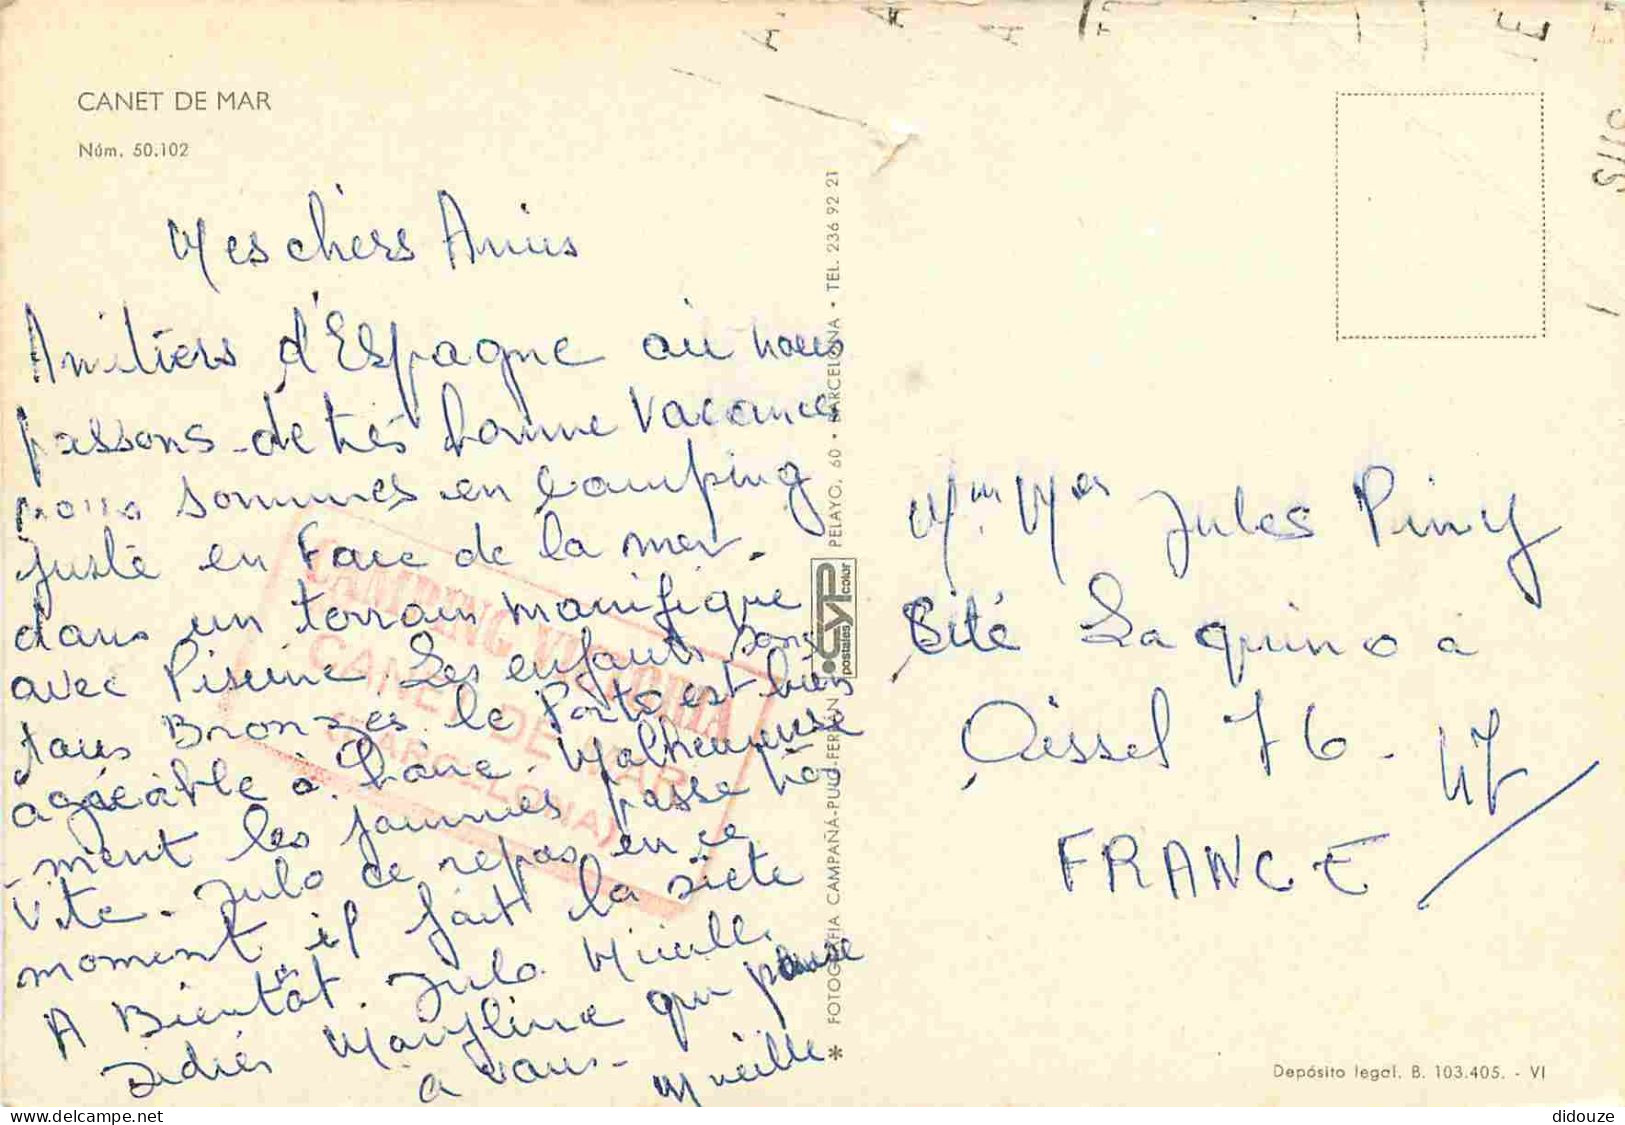 CANET DE MAR
Núm. 50.102
Mes chers Amis
Amitiers d'Espagne où nous
passons de très bonne Vacances
nous sommes en Camping
juste en Face de la mer.
dans un terrain manifique
avec Piscine. Les enfants sons
tous Bronzés. le Porto est bien
agréable à boire. Malheureuse
-ment les journées passe très
vite. Julo se repos en ce
moment il fait la sieste
A Bientôt. Julo Mireille
Didier Maryline qui pense
a vous - Mireille
CAMPING VICTORIA
CANET DE MAR
(BARCELONA)
FOTOGRAFIA CAMPAÑA-PUIG-FERRAN PELAYO, 60 • BARCELONA • TEL. 236 92 21
CYP
postales color
Jules Piny
Cité Laquino a
Aissel 76 - 47
FRANCE
Depósito legal. B. 103.405. - VI
didouze